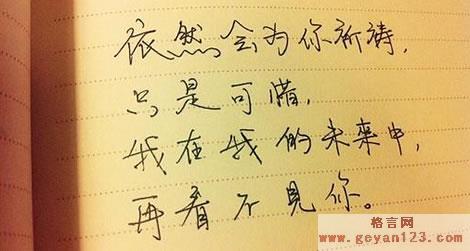 依然会为你祈祷，
只是可惜，
我在我的未来中，
再看不見你。
格言网
www.geyan123.com